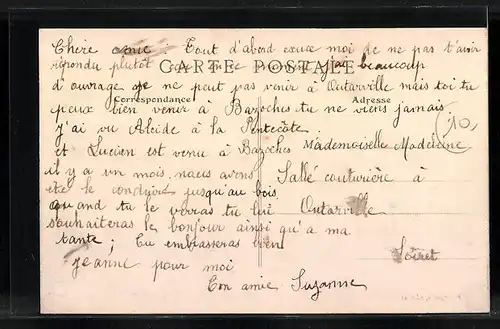 Chère amie : Tout d'abord excuse moi de ne pas t'avoir
répondu plutôt car en ce moment j'ai beaucoup
CARTE POSTALE
d'ouvrage je ne peut pas venir à Outarville mais toi tu
Correspondance
Adresse
peux bien venir à Bazoches tu ne viens jamais
j'ai vu Alcide à la Pentecôte
et Lucien est venu à Bazoches
il y a un mois nous avons
été le conduire jusqu'au bois
quand tu le verras tu lui
souhaiteras le bonjour ainsi qu'a ma
tante ; tu embrasseras bien
Jeanne pour moi
Ton amie Suzanne
Mademoiselle Madeleine
Sallé couturière à
Outarville
Loiret
10